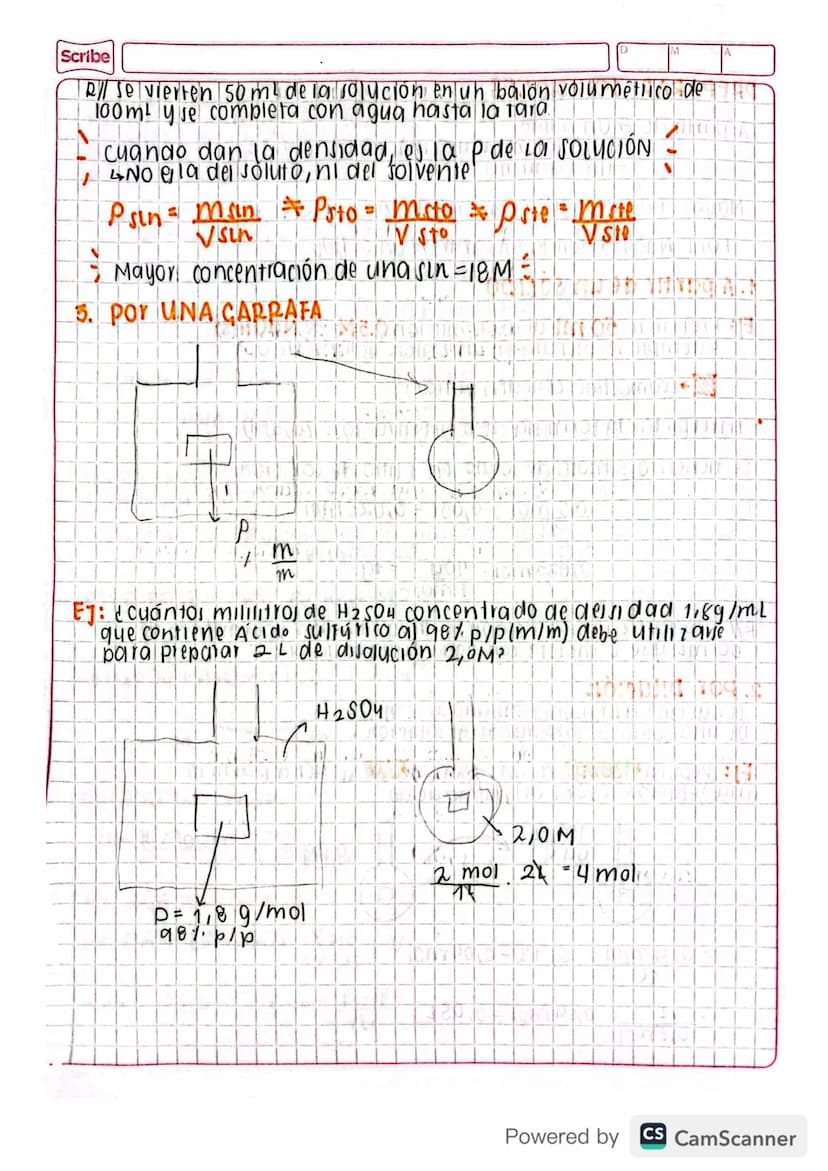 Scribe
D M A
R// se vierten 50 mL de la solución en un balón volumétrico de
100mL y se completa con agua hasta la tara
cuando dan la densidad, es la ρ de la SOLUCIÓN
↳ No es la del soluto, ni del solvente
ρ sln = m sln / V sln * ρ sto = m sto / V sto * ρ ste = m ste / V ste
Mayor concentración de una sln = 18 M
3. POr UNA GARRAFA
ρ
% m/m
EJ: ¿cuántos mililitros de H2SO4 concentrado de densidad 1,8g/mL
que contiene Ácido sulfúrico al 98% p/p (m/m) debe utilizarse
para preparar 2 L de disolución 2,0M?
H2SO4
2,0 M
2 mol / 1L . 2L = 4 mol
ρ = 1,8 g/mol
98% p/p
Powered by CS CamScanner